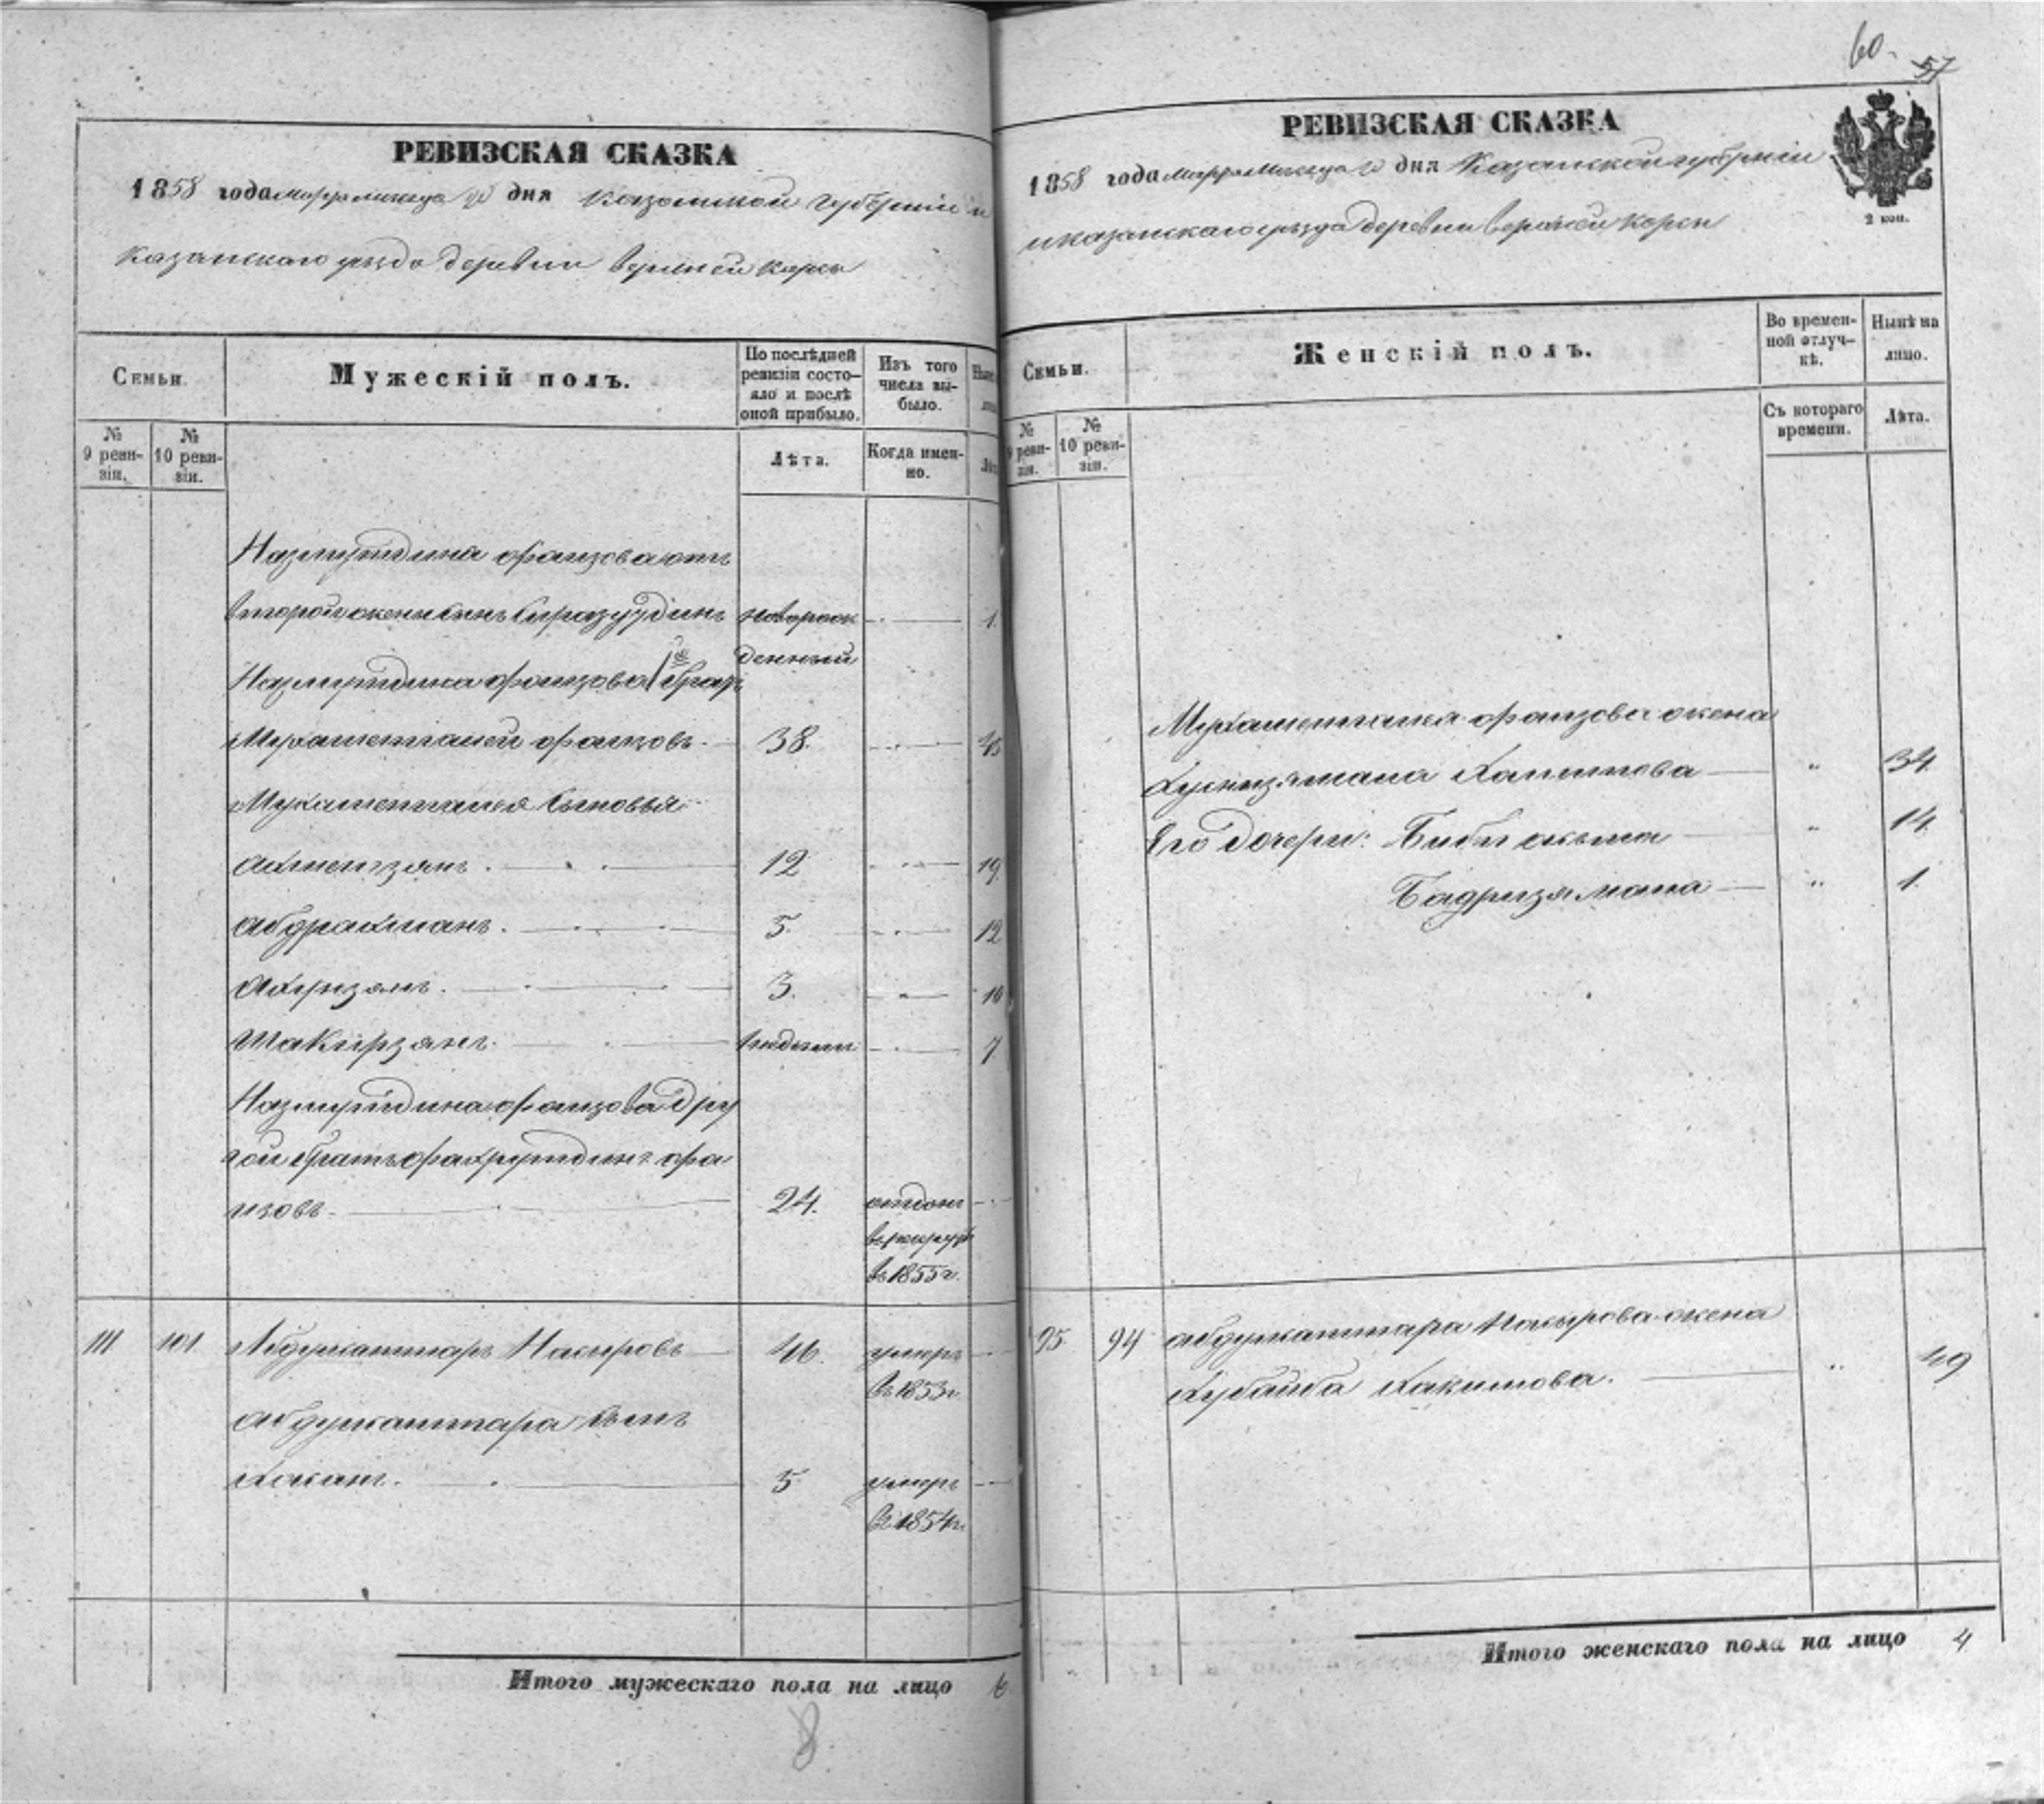 60.
57
РЕВИЗСКАЯ СКАЗКА
1858 года марта месяца дня Казанской губернии и
Казанскаго уезда деревни Верхней Корсы
Семьи.
Мужескій полъ.
По послѣдней ревизіи состо-
яло и послѣ оной прибыло.
Изъ того числа вы-
было.
№ 9 реви-
зіи.
№ 10 реви-
зіи.
Лѣта.
Когда имен-
но.
Назмутдина Фаизова отъ
второй жены сынъ Сиразутдинъ новорож
денный — 1.
Назмутдина Фаизова 1й братъ
Мухаметгалей Фаизовъ. 38. — 45
Мухаметгалея сыновья
Ахметзянъ. 12 — 19.
Абдрахманъ. 5. — 12
Ахунзянъ. 3. — 10
Шакирзянъ. — 7
Назмутдина Фаизова дру
гой братъ Фахрутдинъ Фа
изовъ. 24. отданъ
въ рекруты
въ 1855 г.
111 101 Абдулкаттаръ Насыровъ 46. умеръ
въ 1853 г.
Абдулкаттара сынъ
Хасанъ. 5. умеръ
въ 1854 г.
Итого мужескаго пола на лицо 6.
8
РЕВИЗСКАЯ СКАЗКА
1858 года марта месяца дня Казанской губернии
и Казанскаго уезда деревни Верхней Корсы
2 коп.
Семьи.
Женскій полъ.
Во времен-
ной отлуч-
кѣ.
Нынѣ на
лицо.
№ 9 реви-
зіи.
№ 10 реви-
зіи.
Съ котораго
времени.
Лѣта.
Мухаметгалея Фаизова жена
Хамитова — " 34.
Его дочери: Биби — " 14.
Бадризямана — " 1.
95. 94 Абдулкаттара Насырова жена
Хубайба Хакимова. — " 49
Итого женскаго пола на лицо 4